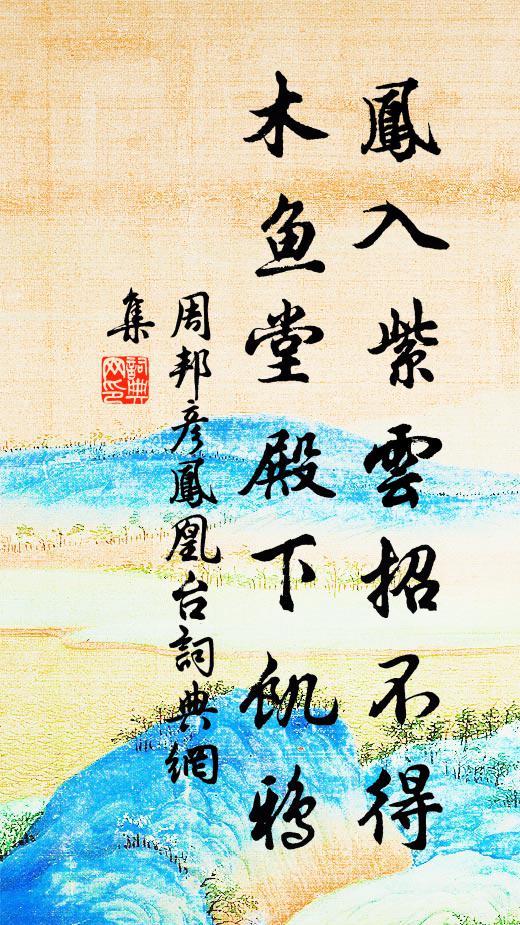 鳳入紫雲招不得
木鱼堂殿下飢鴉
周邦彦鳳凰台詞典網
集
詞典
网印